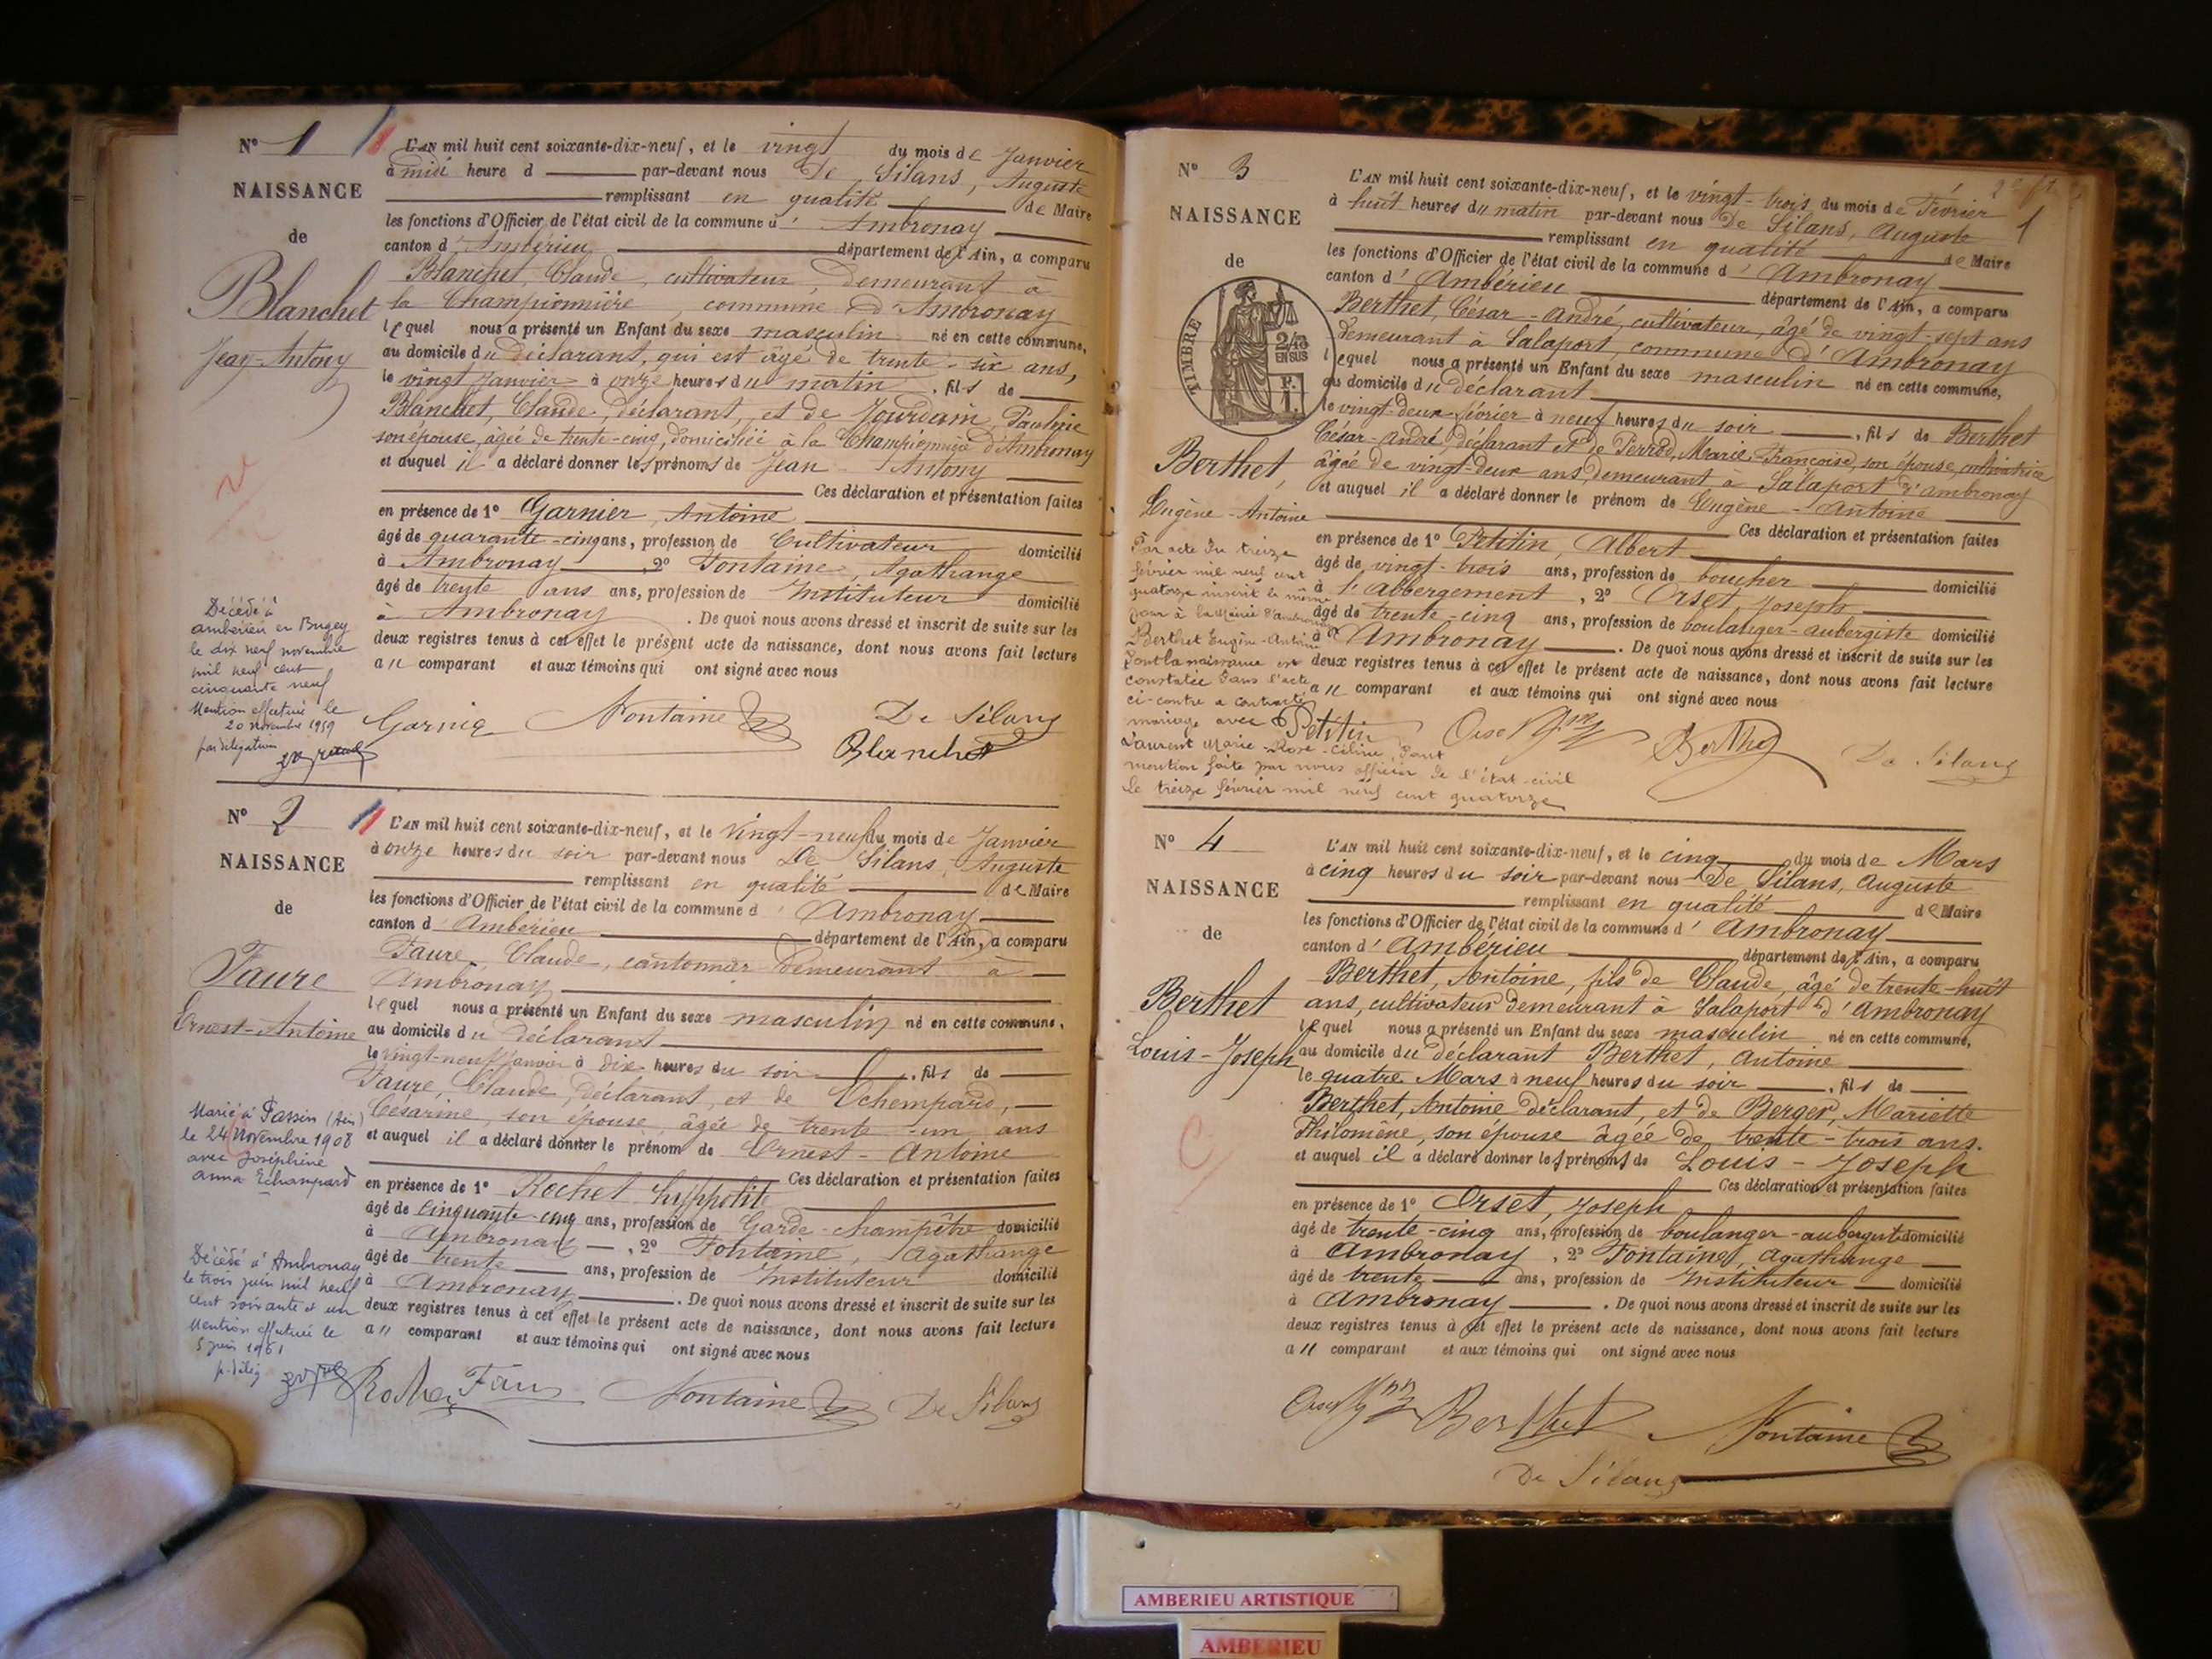 N° 1
L'AN mil huit cent soixante-dix-neuf, et le vingt du mois de Janvier
à midi heure d par-devant nous De Silans, Auguste
NAISSANCE
remplissant en qualité de Maire
les fonctions d'Officier de l'état civil de la commune d' Ambronay
de
canton d'Ambérieu département de l'Ain, a comparu
Blanchet, Claude, cultivateur, demeurant à
Blanchet
la Championnière, commune d'Ambronay
lequel nous a présenté un Enfant du sexe masculin né en cette commune,
Jean-Antony
au domicile du déclarant, qui est âgé de trente-six ans,
le vingt Janvier à onze heures du matin, fils de
Blanchet, Claude, déclarant, et de Jourdain, Pauline
son épouse, âgée de trente-cinq, domiciliée à la Championnière d'Ambronay
et auquel il a déclaré donner les prénoms de Jean-Antony
Ces déclaration et présentation faites
en présence de 1° Garnier, Antoine
âgé de quarante-cinq ans, profession de Cultivateur domicilié
à Ambronay, 2° Fontaine, Agathange
âgé de trente ans ans, profession de Instituteur domicilié
à Ambronay. De quoi nous avons dressé et inscrit de suite sur les
deux registres tenus à cet effet le présent acte de naissance, dont nous avons fait lecture
au comparant et aux témoins qui ont signé avec nous
Décédé à
ambérieu en Bugey
le dix neuf novembre
mil neuf cent
cinquante neuf
Mention effectuée le
20 novembre 1959
par délégation
Garnier Fontaine De Silans
Blanchet
N° 2
L'AN mil huit cent soixante-dix-neuf, et le vingt-neuf du mois de Janvier
à onze heures du soir par-devant nous De Silans, Auguste
NAISSANCE
remplissant en qualité de Maire
les fonctions d'Officier de l'état civil de la commune d' Ambronay
de
canton d'Ambérieu département de l'Ain, a comparu
Faure, Claude, cantonnier demeurant à
Faure
Ambronay
lequel nous a présenté un Enfant du sexe masculin né en cette commune,
Ernest-Antoine
au domicile du déclarant
le vingt-neuf Janvier à dix heures du soir, fils de
Faure, Claude, déclarant, et de Echempard,
Césarine, son épouse, âgée de trente-un ans
et auquel il a déclaré donner le prénom de Ernest-Antoine
Ces déclaration et présentation faites
en présence de 1° Rochet Hippolite
âgé de cinquante-cinq ans, profession de Garde-champêtre domicilié
à Ambronay, 2° Fontaine, Agathange
âgé de trente ans, profession de Instituteur domicilié
à Ambronay. De quoi nous avons dressé et inscrit de suite sur les
deux registres tenus à cet effet le présent acte de naissance, dont nous avons fait lecture
au comparant et aux témoins qui ont signé avec nous
Marié à Passin (Ain)
le 24 Novembre 1908
avec Joséphine
anna Echampard
Décédé à Ambronay
le trois juin mil neuf
cent soixante et un
Mention effectuée le
5 juin 1961
p. délég
Rochet Faure Fontaine De Silans
N° 3
1
L'AN mil huit cent soixante-dix-neuf, et le vingt-trois du mois de Février
à huit heures du matin par-devant nous De Silans, Auguste
NAISSANCE
remplissant en qualité de Maire
les fonctions d'Officier de l'état civil de la commune d' Ambronay
de
canton d' Ambérieu département de l'Ain, a comparu
TIMBRE
2/10
EN SUS
Berthet, César-André, cultivateur, âgé de vingt-sept ans
demeurant à Salaport, commune d'Ambronay
lequel nous a présenté un Enfant du sexe masculin né en cette commune,
au domicile du déclarant
le vingt-deux février à neuf heures du soir, fils de Berthet
César-André, déclarant et de Perrod, Marie-Françoise, son épouse, cultivatrice
Berthet,
âgée de vingt-deux ans, demeurant à Salaport d'ambronay
et auquel il a déclaré donner le prénom de Eugène-Antoine
Eugène-Antoine
Ces déclaration et présentation faites
en présence de 1° Petitin, Albert
âgé de vingt-trois ans, profession de boucher domicilié
à l'abbergement, 2° Orset, Joseph
âgé de trente-cinq ans, profession de boulanger-aubergiste domicilié
à Ambronay. De quoi nous avons dressé et inscrit de suite sur les
deux registres tenus à cet effet le présent acte de naissance, dont nous avons fait lecture
au comparant et aux témoins qui ont signé avec nous
Par acte du treize
février mil neuf cent
quatorze inscrit le même
jour à la Mairie d'ambronay
Berthet Eugène-Antoine
dont la naissance est
constatée dans l'acte
ci-contre a contracté
mariage avec
Laurent Marie-Rose-Céline, dont
mention faite par nous officier de l'état-civil
le treize février mil neuf cent quatorze
Petitin Orset Berthet De Silans
N° 4
L'AN mil huit cent soixante-dix-neuf, et le cinq du mois de Mars
à cinq heures du soir par-devant nous De Silans, Auguste
NAISSANCE
remplissant en qualité de Maire
les fonctions d'Officier de l'état civil de la commune d' Ambronay
de
canton d' Ambérieu département de l'Ain, a comparu
Berthet, Antoine, fils de Claude, âgé de trente-huit
Berthet
ans, cultivateur demeurant à Salaport d'ambronay
lequel nous a présenté un Enfant du sexe masculin né en cette commune,
Louis-Joseph
au domicile du déclarant Berthet, Antoine
le quatre Mars à neuf heures du soir, fils de
Berthet, Antoine déclarant, et de Berger, Mariette
Philomène, son épouse âgée de trente-trois ans.
et auquel il a déclaré donner les prénoms de Louis-Joseph
Ces déclaration et présentation faites
en présence de 1° Orset, Joseph
âgé de trente-cinq ans, profession de boulanger-aubergiste domicilié
à Ambronay, 2° Fontaine, Agathange
âgé de trente ans, profession de Instituteur domicilié
à Ambronay. De quoi nous avons dressé et inscrit de suite sur les
deux registres tenus à cet effet le présent acte de naissance, dont nous avons fait lecture
au comparant et aux témoins qui ont signé avec nous
Orset Berthet Fontaine
De Silans
AMBERIEU ARTISTIQUE
AMBERIEU